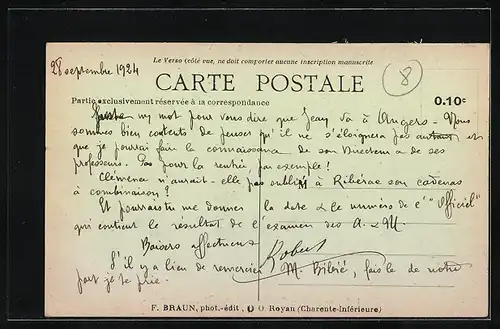 28 septembre 1924
Le Verso (côté vue, ne doit comporter aucune inscription manuscrite
CARTE POSTALE
8
Partie exclusivement réservée à la correspondance
0.10c
Juste un mot pour vous dire que Jean va à Angers - Nous
sommes bien contents de penser qu'il ne s'éloignera pas autant et
que je pourrai faire la connaissance de son Directeur & de ses
professeurs. Pas pour la rentrée, par exemple!
Clémence n'aurait-elle pas oublié à Ribérac son cadenas
à combinaison?
Et pourrais-tu me donner la date & le numéro de l'"Officiel"
qui contient le résultat de l'examen des A. & M.
Baisers affectueux
Robert
S'il y a lieu de remercier M. , fais le de notre
part je te prie.
F. BRAUN, phot.-édit, Royan (Charente-Inférieure)